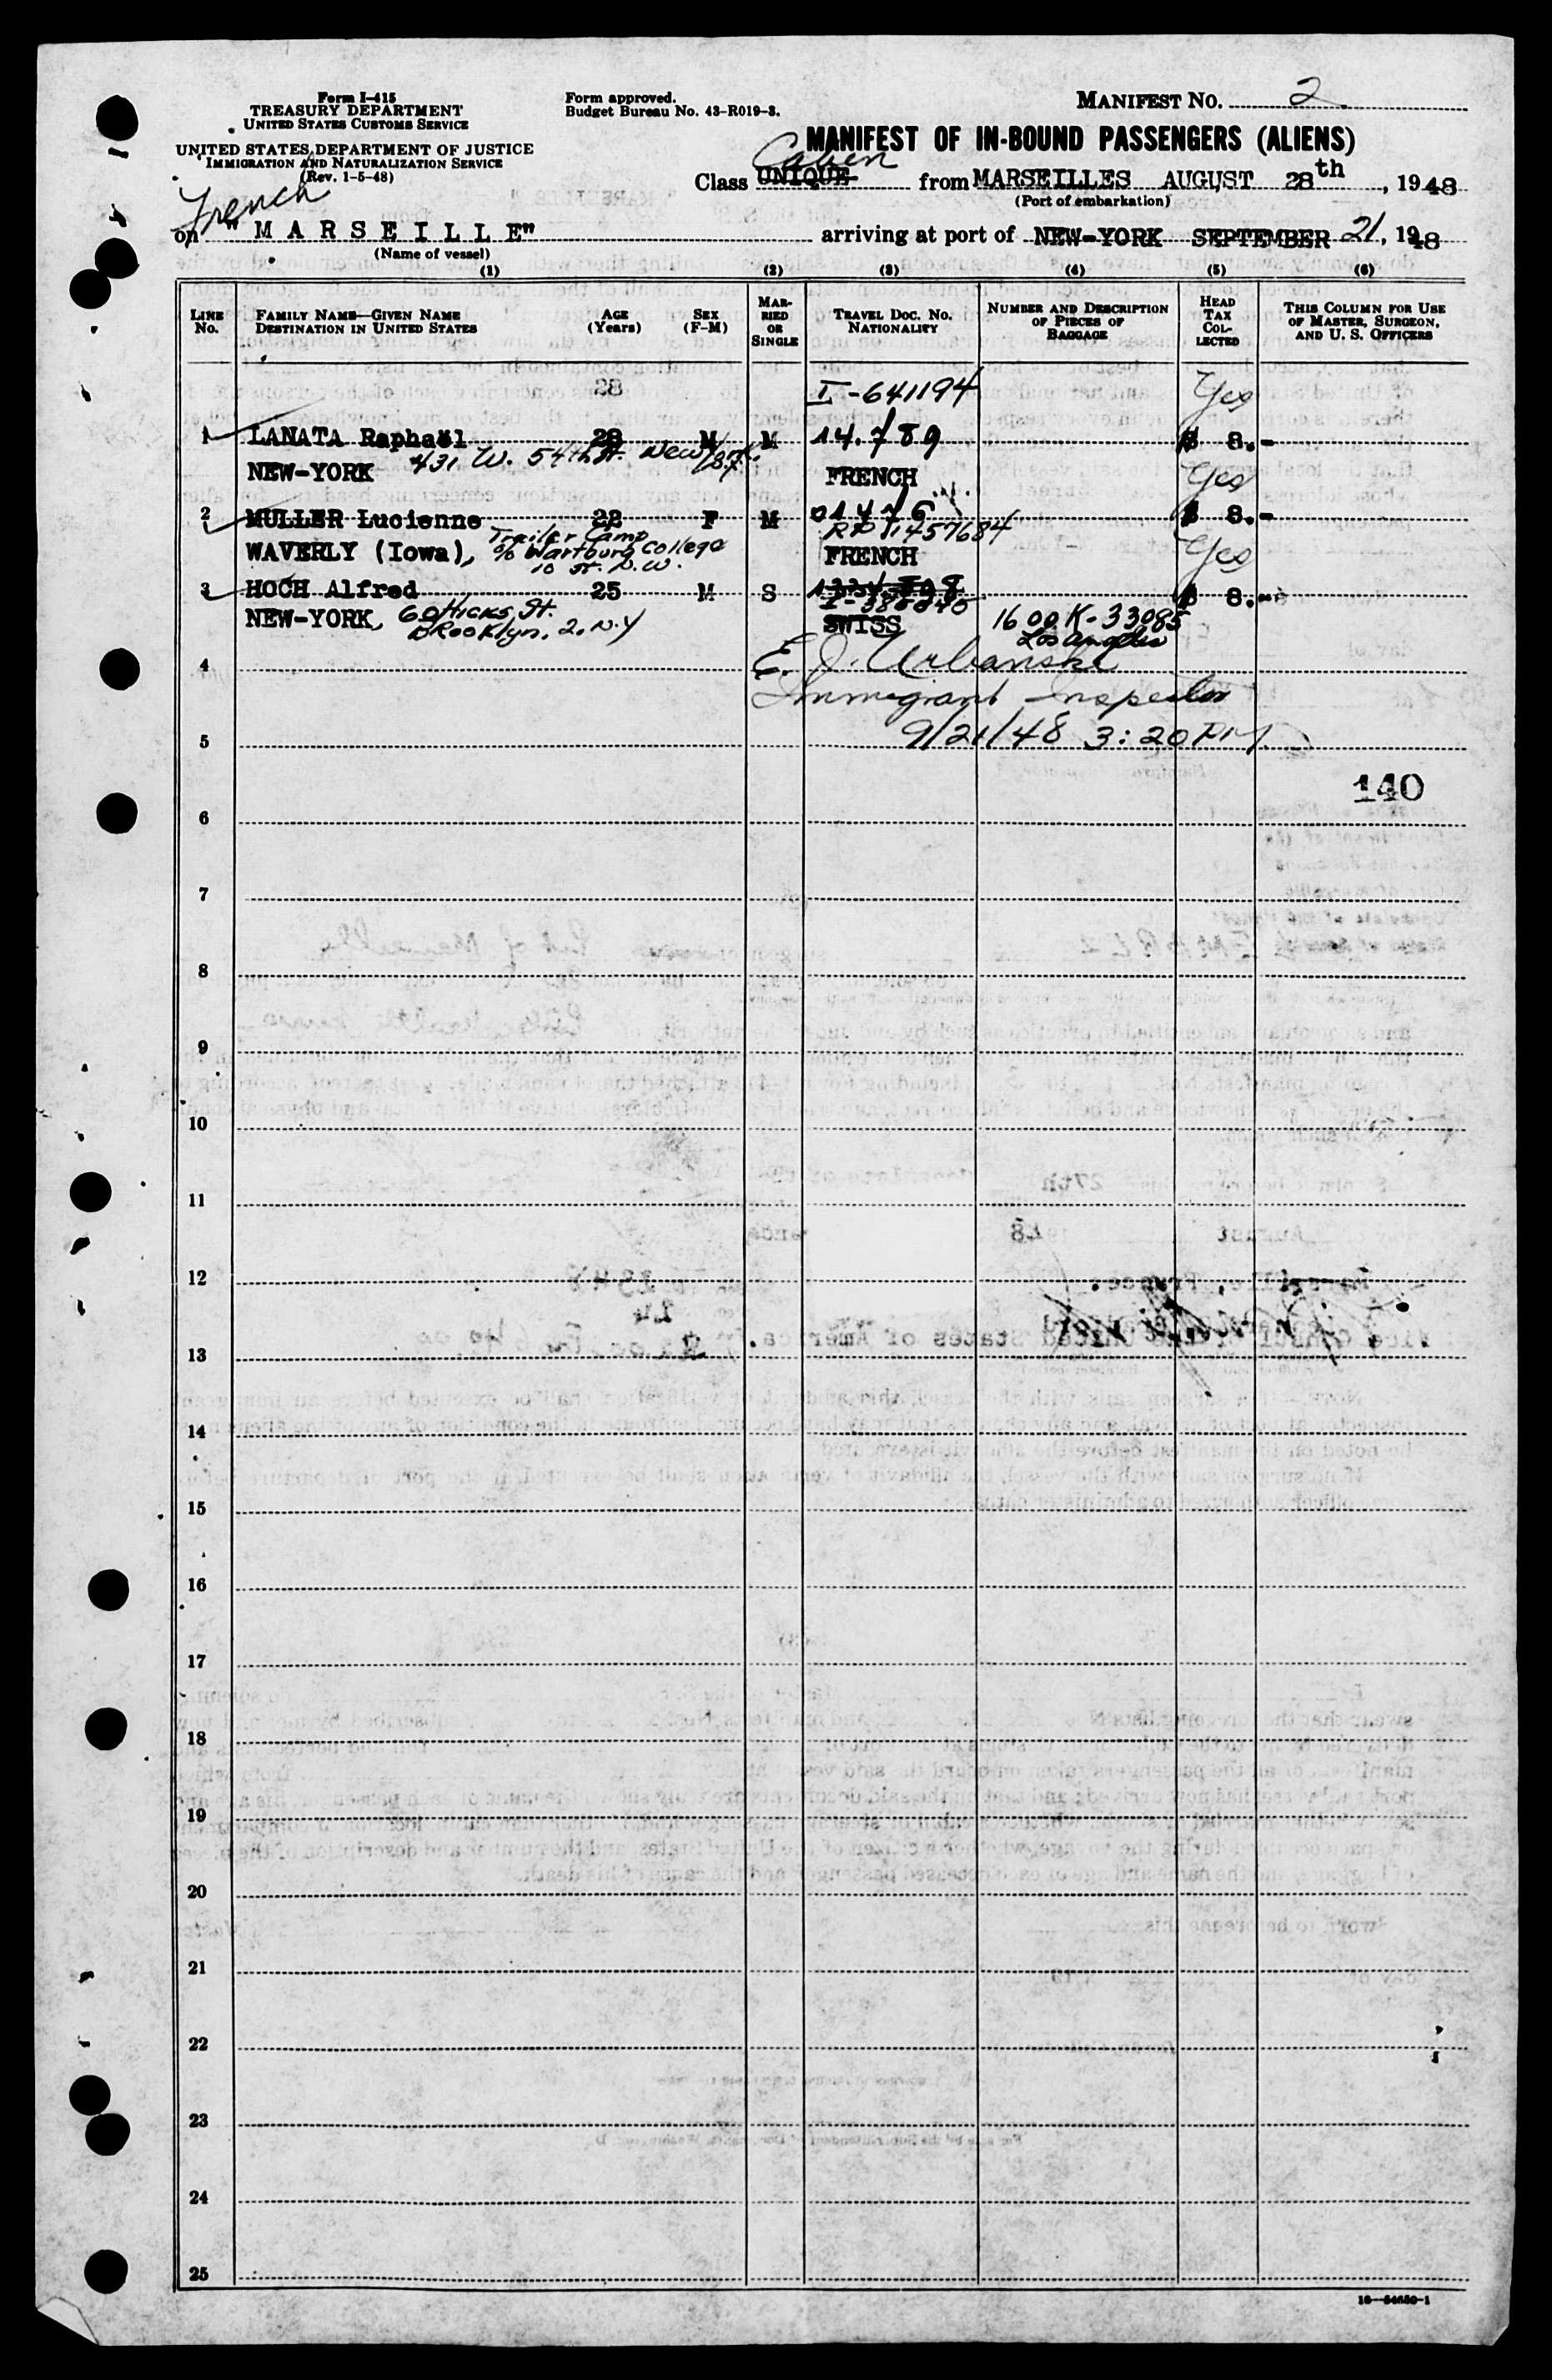 Form I-415
TREASURY DEPARTMENT
UNITED STATES CUSTOMS SERVICE
UNITED STATES DEPARTMENT OF JUSTICE
IMMIGRATION AND NATURALIZATION SERVICE
(Rev. 1-5-48)
Form approved.
Budget Bureau No. 43-R019-3.
MANIFEST NO. 2
MANIFEST OF IN-BOUND PASSENGERS (ALIENS)
Cabin
Class UNIQUE from MARSEILLES AUGUST 28th, 1948
(Port of embarkation)
French
on "MARSEILLE" arriving at port of NEW-YORK SEPTEMBER 21, 1948
(Name of vessel)
(1) (2) (3) (4) (5) (6)
LINE No. FAMILY NAME—GIVEN NAME DESTINATION IN UNITED STATES AGE (Years) SEX (F-M) MARRIED OR SINGLE TRAVEL DOC. NO. NATIONALITY NUMBER AND DESCRIPTION OF PIECES OF BAGGAGE HEAD TAX COLLECTED THIS COLUMN FOR USE OF MASTER, SURGEON, AND U. S. OFFICERS
I-641194 Yes
1 LANATA Raphaël 28 M M 14.789 $ 8.-
NEW-YORK 431 W. 54th St. New York. FRENCH Yes
2 MULLER Lucienne 22 F M 01476 $ 8.-
RP 1457684
WAVERLY (Iowa), Trailer Camp c/o Wartburg College 10 St. N.W. FRENCH Yes
3 HOCH Alfred 25 M S $ 8.-
I-386045
NEW-YORK, 60 Hicks St. Brooklyn. 2. N.Y SWISS 1600K-33085
Los Angeles
4 E. J. Urbanski
Immigrant Inspector
5 9/21/48 3:20 PM
140
6
7
8
9
10
11
12
13
14
15
16
17
18
19
20
21
22
23
24
25
16—54650-1